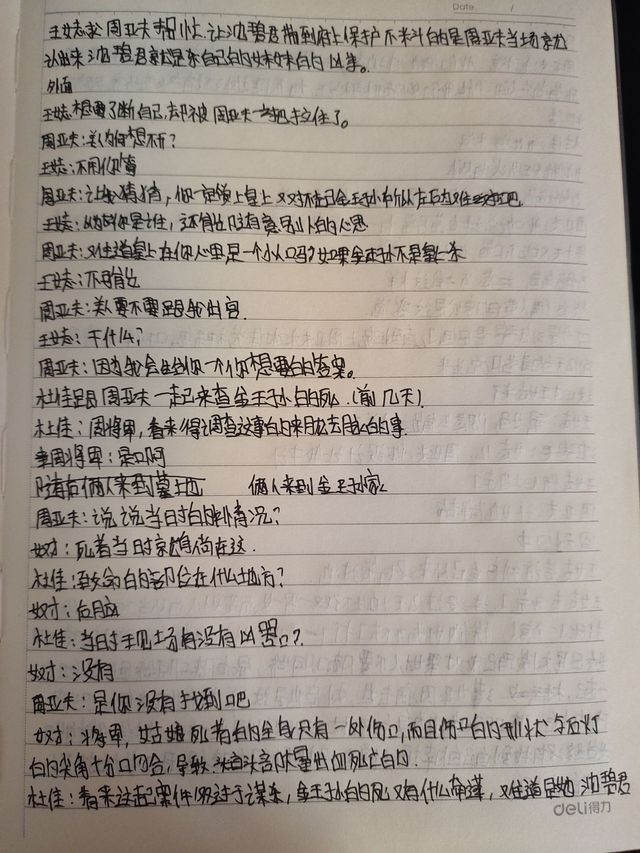 Date
王娡求周亚夫帮忙.让沈碧君带到府上保护不料的是周亚夫当场就
认出来沈碧君就是杀自己的妹妹的凶手。
外面
王娡想要了断自己,却被周亚夫一把拉住了。
周亚夫:美人为何想不开?
王娡:不用你管
周亚夫:让我猜猜,你一定领上皇上又对不起金王孙所以左右为难对吧
王娡:以为你是谁,还有比随意别人的心思
周亚夫:难道皇上在你心里是一个小人吗?如果金王孙不是皇上杀
王娡:不可能
周亚夫:美人要不要跟我出宫.
王娡:干什么?
周亚夫:因为我会给你一个你想要的答案。
杜佳跟周亚夫一起来查金王孙的死.(前几天)
杜佳:周将军,看来得调查这事的来龙去脉的事.
周将军:是啊
随后俩人来到墓地 俩人来到金王孙家
周亚夫:说说当日时的情况?
奴才:死者当日时就躺在这.
杜佳:致命的部位在什么地方?
奴才:后脑
杜佳:当日时现场有没有凶器?
奴才:没有
周亚夫:是你没有找到吧
奴才:将军,姑娘死者的全身只有一处伤口,而且伤口的形状与石灯
的尖角十分吻合,导致头部大量出血死亡的.
杜佳:看来这起案件似过于谋杀,金王孙的死又有什么牵连,难道是她 沈碧君
deli得力